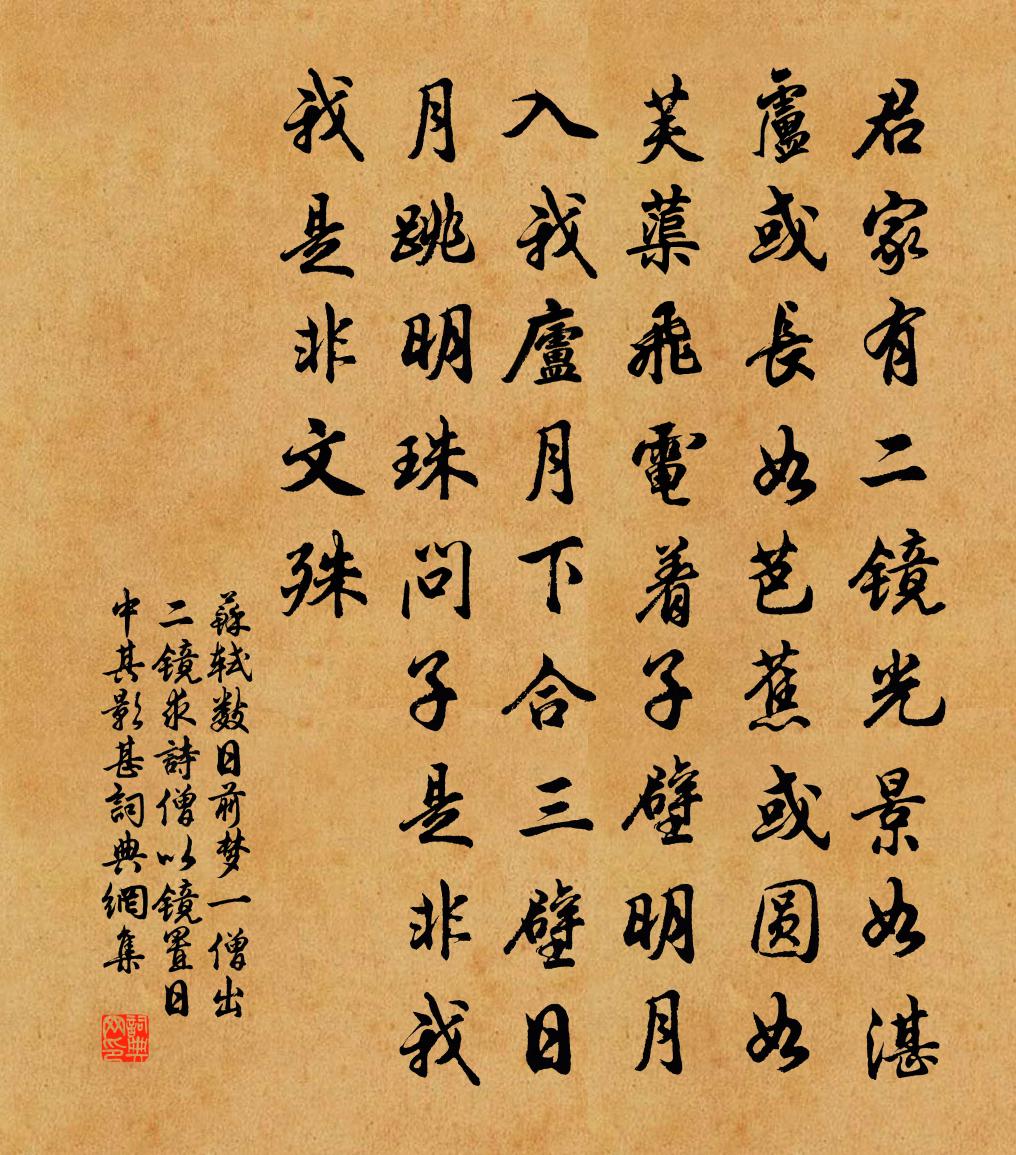 君家有二镜光景如湛
盧或長如芭蕉或圆如
芙蕖飛電着子壁明月
入我廬月下合三壁日
月跳明珠問子是非我
我是非文殊
蘇轼数日前梦一僧出
二镜求詩僧以镜置日
中其影甚詞典網集
詞典
网印